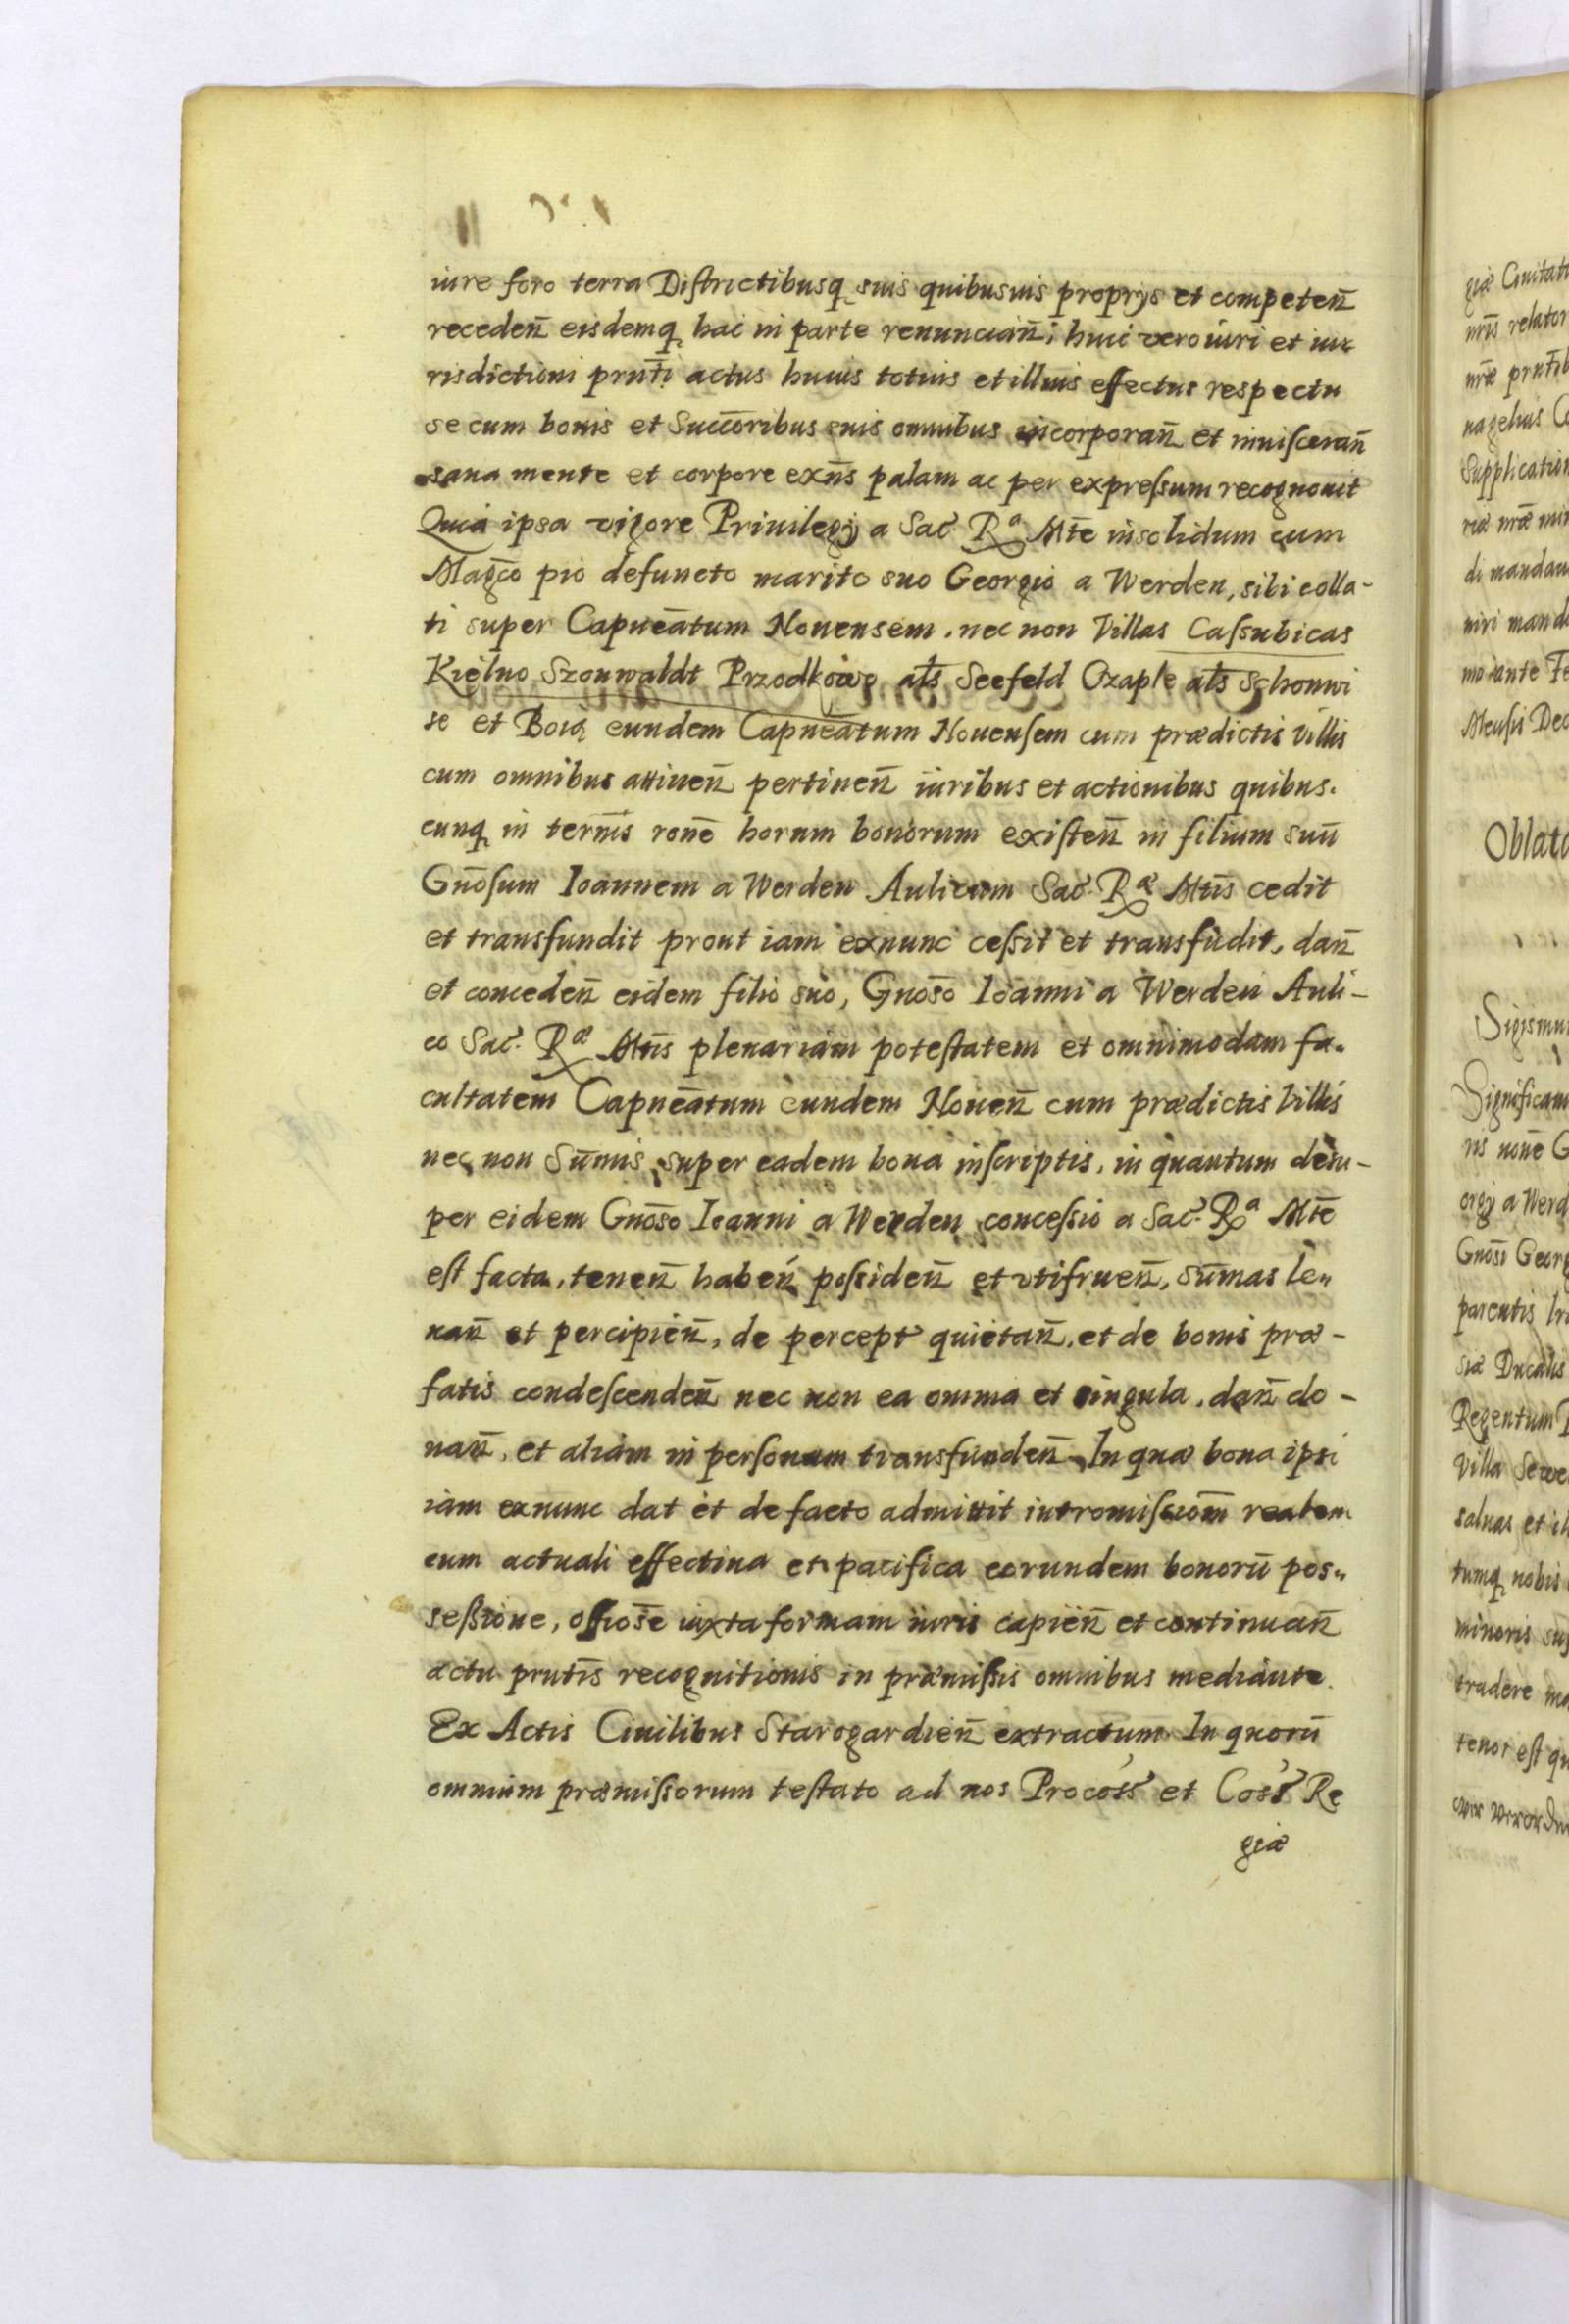 iure foro terra Districtibusq̨ suis quibusuis proprys et competen̄
receden̄ eisdemq̨ hac in parte renuncian̄, huic vero iuri et iu⸗
risdictioni prnt̄i actus huius totius et illius effectus respectu
se cum bonis et Succōribus suis omnibus incorporan̄ et inuisceran̄
sana mente et corpore exn̄s palam ac per expressum recognouit
Quia ipsa vigore Priuilegij a Sac. R^a Mte insolidum cum
Magc̄o pio defuncto marito suo Georgio a Werden, sibi colla-
ti super Capneātum Nouensem, nec non Villas Cassubicas
Kielno Szonwaldt Przodkowo al̄s Seefeld Czaple al̄s Schonwi
se et Boią eundem Capneātum Nouensem cum prædictis villis
cum omnibus attinen̄ pertinen̄ iuribus et actionibus quibus⸗
cunq̨ in tern̄is ronē horum bonorum existen̄ in filium suū
Gnōsum Ioannem a Werden Aulicum Sac. R^æ Mtis cedit
et transfundit prout iam exnunc cessit et transfudit, dan̄
et conceden̄ eidem filio suo, Gnōso Ioanni a Werden Auli-
co Sac. R^æ Mtis plenariam potestatem et omnimodam fa⸗
cultatem Capneātum eundem Nouen̄ cum prædictis Villis
nec non Sūmis super eadem bona inscriptis, in quantum desu-
per eidem Gnōso Ioanni a Werden concessio a Sac. R^a Mte
est facta, tenen̄ haben̄ possiden̄ et vtifruen̄, sūmas le⸗
uan̄ et percipien̄, de percept quietan̄, et de bonis præ-
fatis condescenden̄ nec non ea omnia et singula, dan̄ do-
nan̄, et aliam in personam transfunden̄. In quæ bona ipsi
iam exnunc dat et de facto admittit intromissiom̄ realem
cum actuali effectiua et pacifica eorundem bonorū pos⸗
sessione, offiosē iuxta formam iuris capien̄ et continuan̄
actu prntis̄ recognitionis in præmissis omnibus mediante.
Ex Actis Ciuilibus Starogardien̄ extractum. In quorū
omnium præmissorum testato ad nos Procoss et Coss Re
giæ
Oblata
Sigismun
Significam